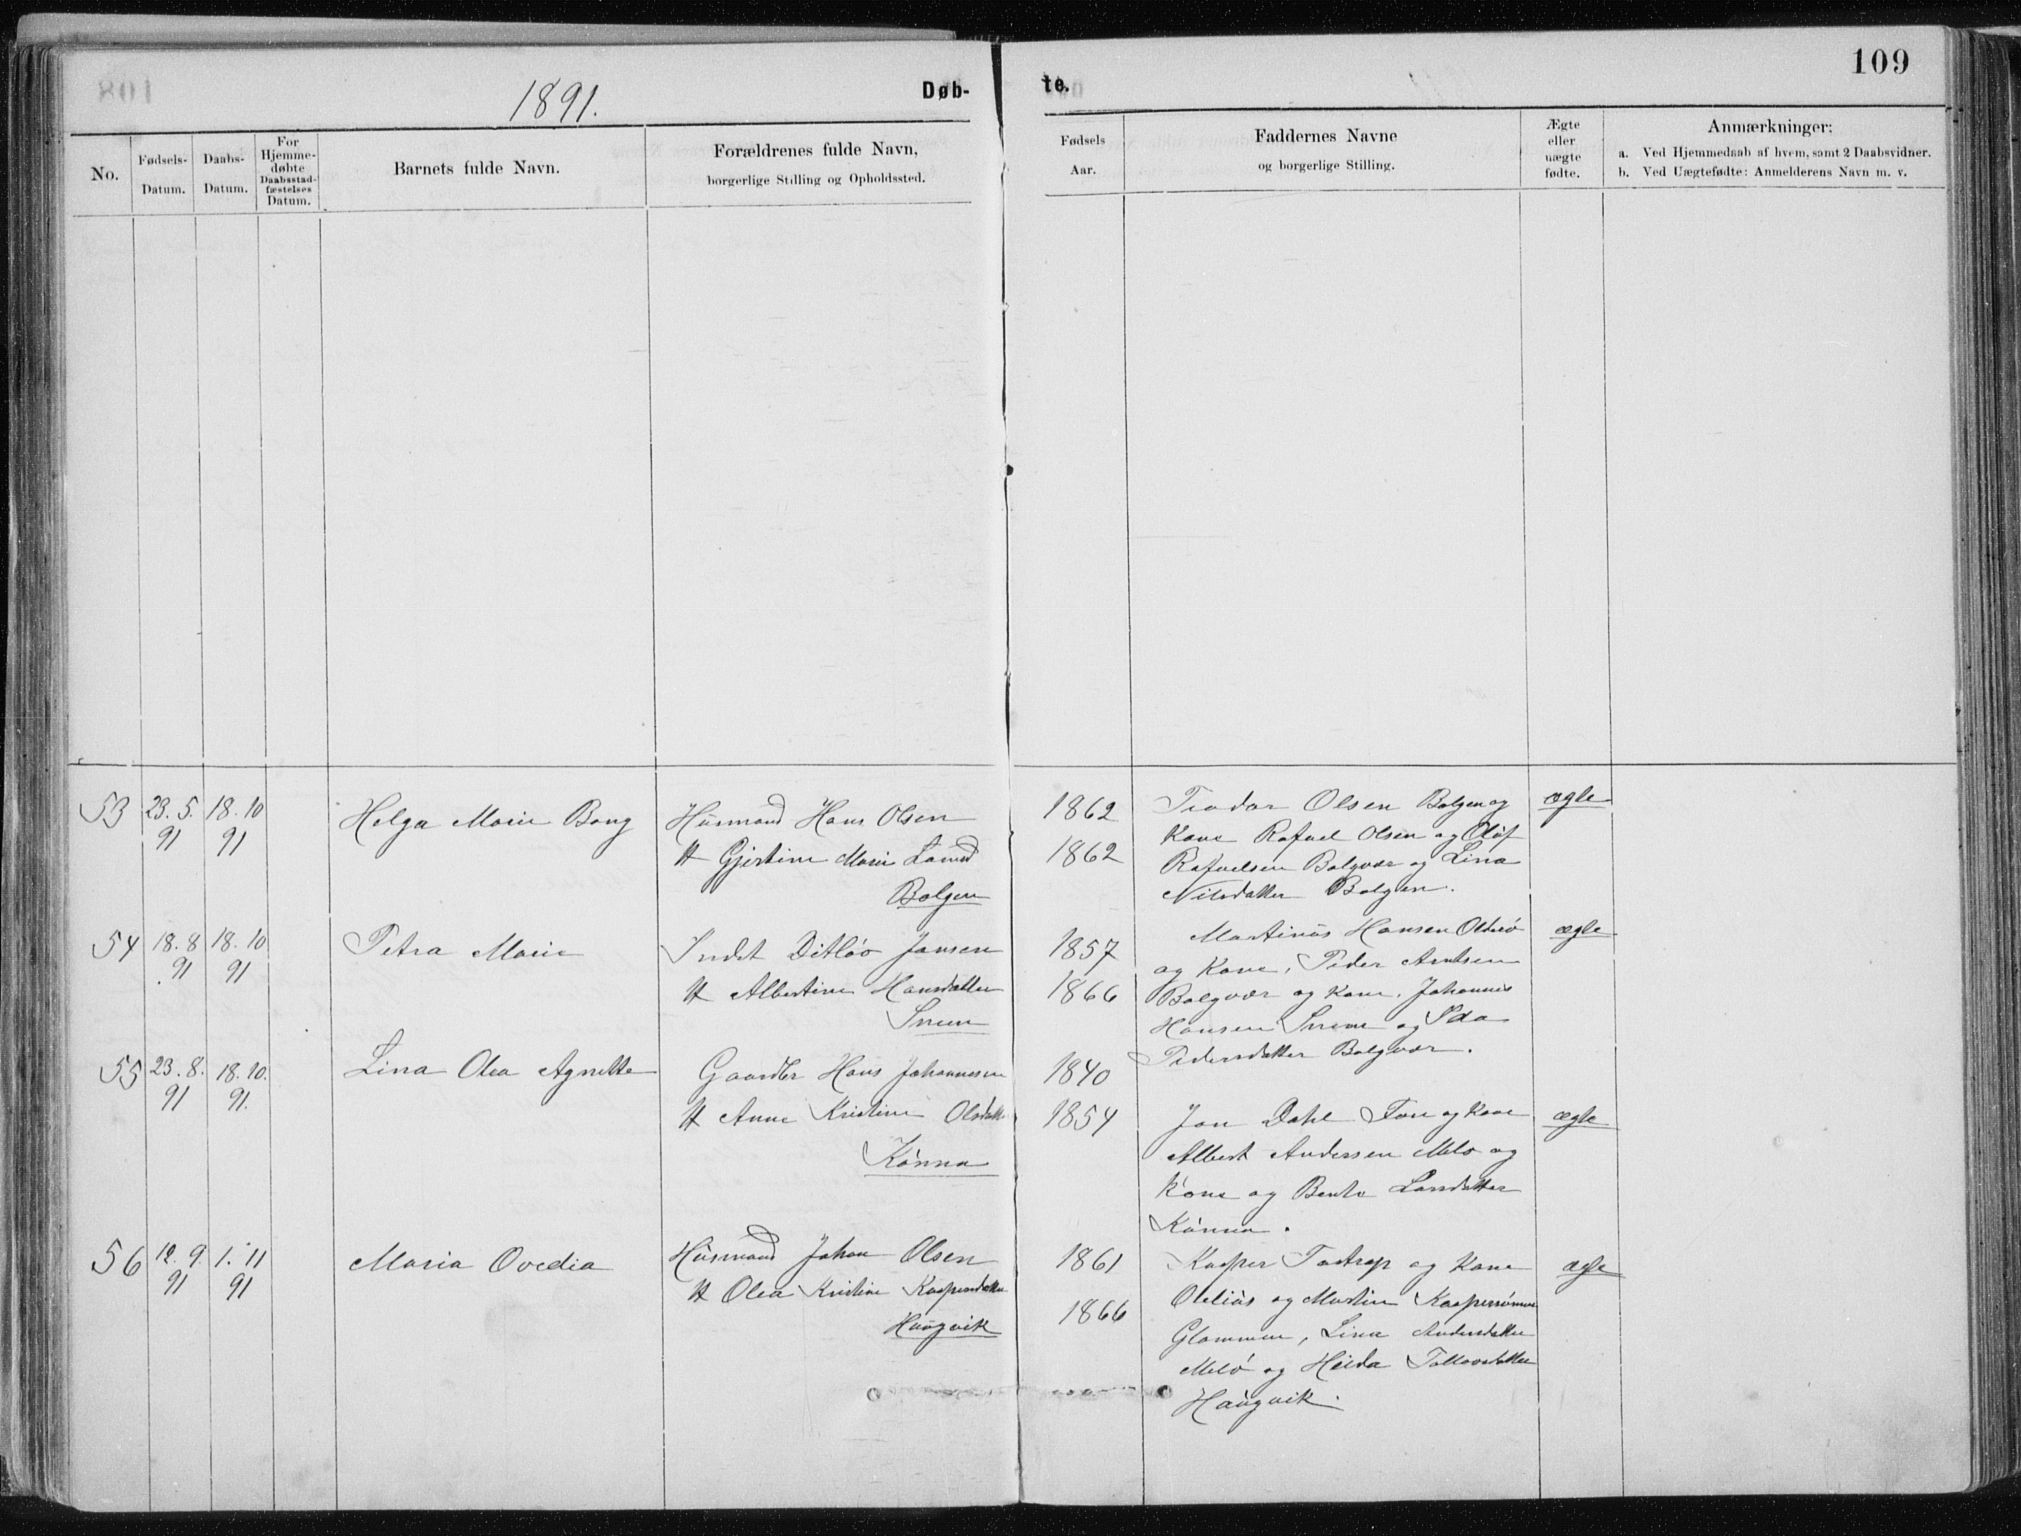 1891.
Døb-
te.
109
No.
Fødsels-
Datum.
Daabs-
Datum.
For
Hjemme-
døbte
Daabsstad-
fæstelses
Datum.
Barnets fulde Navn.
Forældrenes fulde Navn,
borgerlige Stilling og Opholdssted.
Fødsels
Aar.
Faddernes Navne
og borgerlige Stilling.
Ægte
eller
uægte
fødte.
Anmærkninger:
a. Ved Hjemmedaab af hvem, samt 2 Daabsvidner.
b. Ved Uægtefødte: Anmelderens Navn m. v.
53
23. 5.
91
18. 10
91
Helga Marie Bang
Husmand Hans Olsen
H Gjertine Marie
Bolgen
1862
1862
Teodor Olsen Bolgen og
Kone Rafael Olsen og Oluf
Rafaelsen Bolgvær og Lina
Nilsdatter Bolgen.
ægte
54
18. 8
91
18. 10
91
Petra Marie
Indst Ditløv Jansen
H Albertine Hansdatter
1857
1866
Martinus Hansen
og Kone, Peder Arntsen
Bolgvær og Kone, Johannes
Hansen og Ida
Pedersdatter Bolgvær.
ægte
55
23. 8.
91
18. 10.
91.
Lina Olea Agnette
Gaardbr Hans Johannesen
H Anne Kristine Olsdatt
Könna
1840
1854
Jon Dahl og Kone
Albert Andersen Melø og
Kone og Larsdatter
Könna.
ægte
56
12. 9.
91
1. 11
91
Maria Ovedia
Husmand Johan Olsen
H Olea Kristine Kaspersdatter
Haugvik
1861
1866
Kasper Tostrup og Kone
Otelius og Martin
Glommen, Lina Andersdatter
Melö og
Haugvik.
ægte